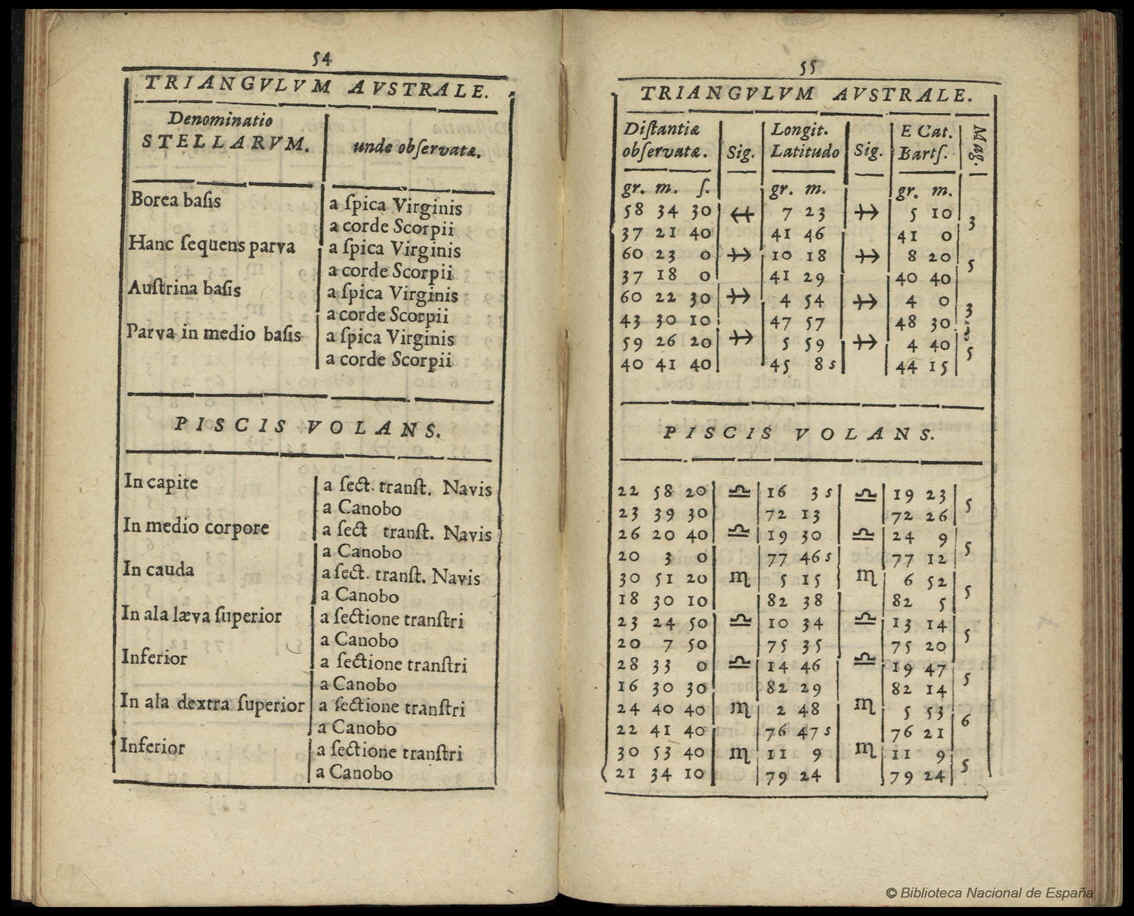 54
TRIANGVLVM AVSTRALE.
Denominatio
STELLARVM. unde observatæ.
Borea basis a ſpica Virginis
a corde Scorpii
Hanc ſequens parva a ſpica Virginis
a corde Scorpii
Auſtrina baſis a ſpica Virginis
a corde Scorpii
Parva in medio baſis a ſpica Virginis
a corde Scorpii
PISCIS VOLANS.
In capite a ſect. tranſt. Navis
a Canobo
In medio corpore a ſect tranſt. Navis
a Canobo
In cauda a ſect. tranſt. Navis
a Canobo
In ala læva ſuperior a ſectione tranſtri
a Canobo
Inferior a ſectione tranſtri
a Canobo
In ala dextra ſuperior a ſectione tranſtri
a Canobo
Inferior a ſectione tranſtri
a Canobo
55
TRIANGVLVM AVSTRALE.
Diſtantiæ Longit. E Cat. Mag.
obſervatæ. Sig. Latitudo Sig. Bartſ.
gr. m. ſ. gr. m. gr. m.
58 34 30 ♐ 7 23 ♐ 5 10 3
37 21 40 41 46 41 0
60 23 0 ♐ 10 18 ♐ 8 20 5
37 18 0 41 29 40 40
60 22 30 ♐ 4 54 ♐ 4 0 3
43 30 10 47 57 48 30
59 26 20 ♐ 5 59 ♐ 4 40 5
40 41 40 45 8 s 44 15
PISCIS VOLANS.
22 58 20 ♎ 16 3 s ♎ 19 23 5
23 39 30 72 13 72 26
26 20 40 ♎ 19 30 ♎ 24 9 5
20 3 0 77 46 s 77 12
30 51 20 ♏ 5 15 ♏ 6 52 5
18 30 10 82 38 82 5
23 24 50 ♎ 10 34 ♎ 13 14 5
20 7 50 75 35 75 20
28 33 0 ♎ 14 46 ♎ 19 47 5
16 30 30 82 29 82 14
24 40 40 ♏ 2 48 ♏ 5 53 6
22 41 40 76 47 s 76 21
30 53 40 ♏ 11 9 ♏ 11 9 5
21 34 10 79 24 79 24
© Biblioteca Nacional de España